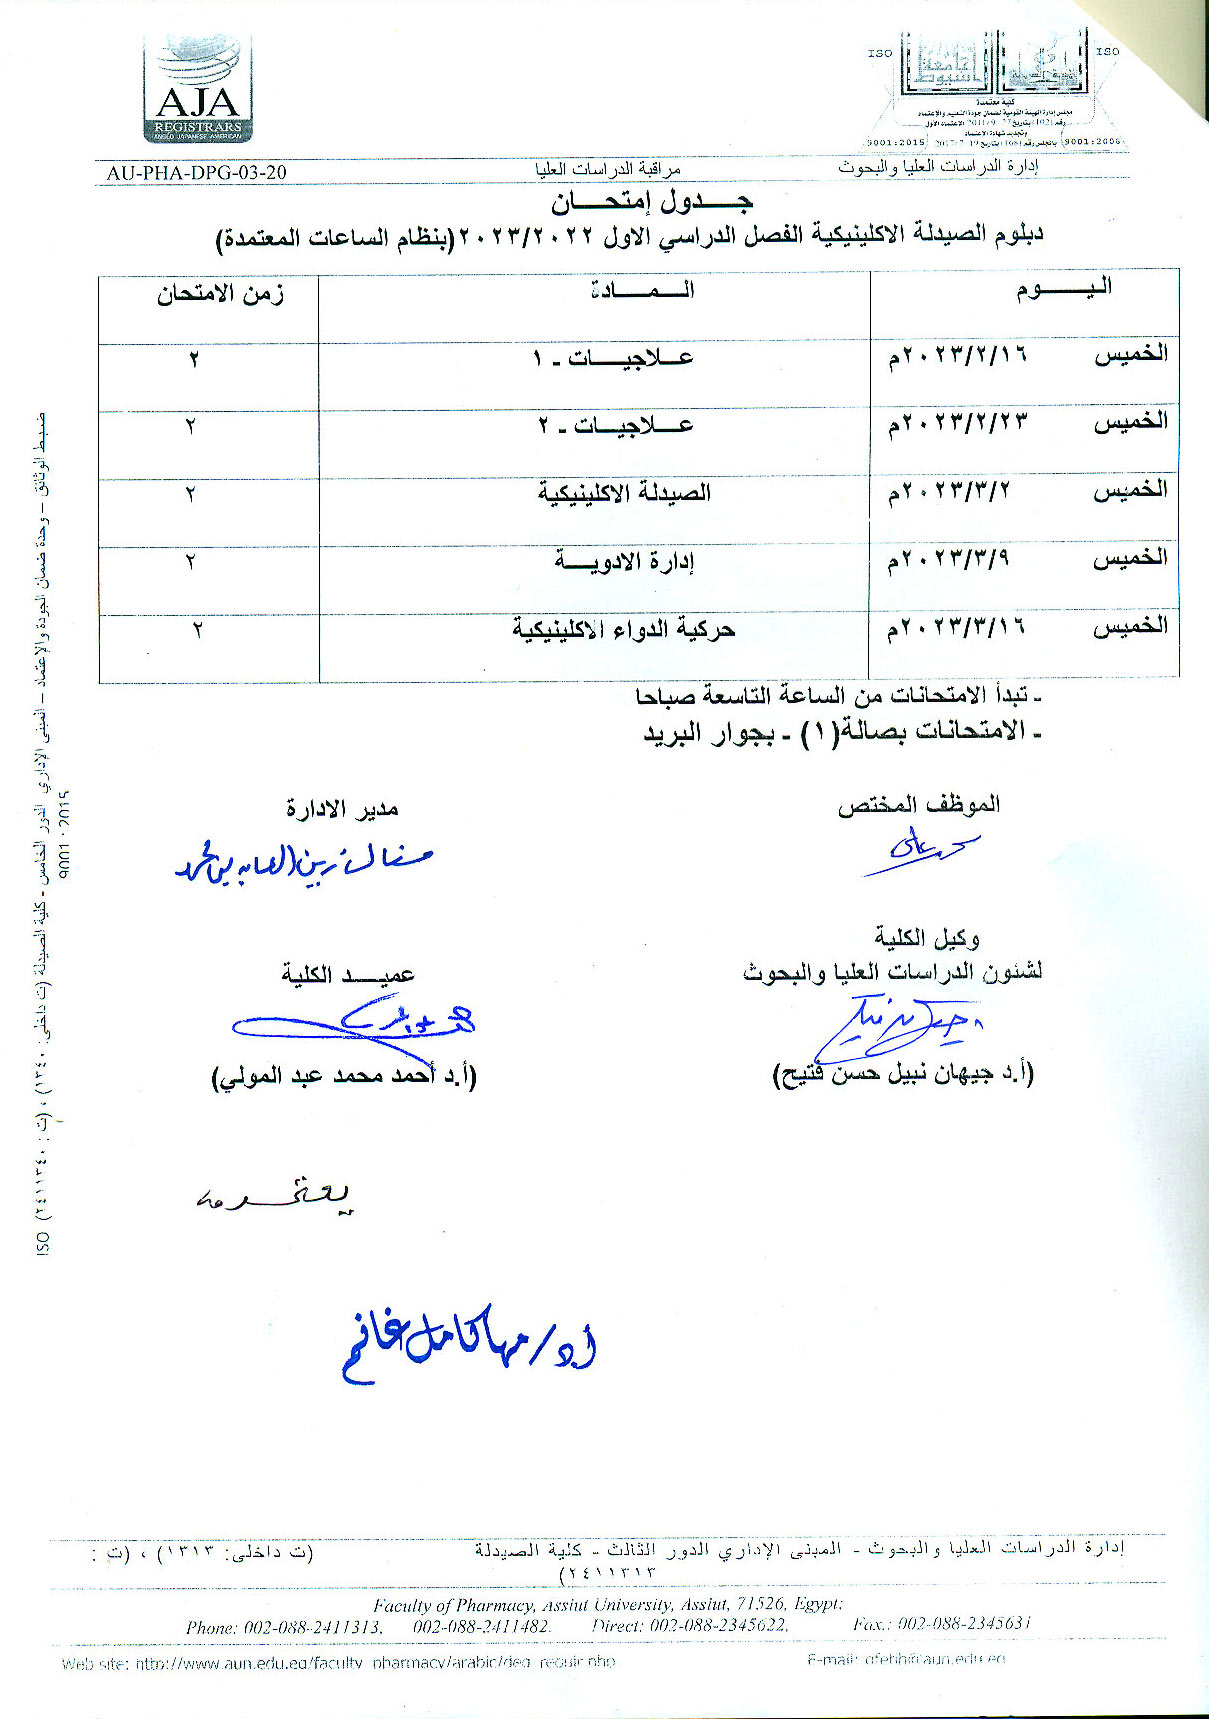 AJA
REGISTRARS
ANGLO JAPANESE AMERICAN
ISO
ISO
كلية معتمدة
مجلس إدارة الهيئة القومية لضمان جودة التعليم والاعتماد
وتجديد شهادة الاعتماد
9001:2015
9001:2008
AU-PHA-DPG-03-20
مراقبة الدراسات العليا
إدارة الدراسات العليا والبحوث
جـــدول إمتحـــان
دبلوم الصيدلة الاكلينيكية الفصل الدراسي الاول ٢٠٢٣/٢٠٢٢(بنظام الساعات المعتمدة)
اليـــوم
المـــادة
زمن الامتحان
الخميس ٢٠٢٣/٢/١٦م
عـلاجيـــات - ١
٢
الخميس ٢٠٢٣/٢/٢٣م
عـلاجيـــات - ٢
٢
الخميس ٢٠٢٣/٣/٢م
الصيدلة الاكلينيكية
٢
الخميس ٢٠٢٣/٣/٩م
إدارة الادويـــة
٢
الخميس ٢٠٢٣/٣/١٦م
حركية الدواء الاكلينيكية
٢
- تبدأ الامتحانات من الساعة التاسعة صباحا
- الامتحانات بصالة(١) - بجوار البريد
الموظف المختص
مدير الادارة
منال زين العابدين محمد
وكيل الكلية
لشئون الدراسات العليا والبحوث
عميـــد الكلية
(أ.د جيهان نبيل حسن فتيح)
(أ.د أحمد محمد عبد المولي)
يعتمد
أ.د/ مها كامل غانم
ضبط الوثائق – وحدة ضمان الجودة والاعتماد – المبنى الإداري الدور الخامس - كلية الصيدلة (ت داخلى: ١٣٤٠) ، (ت : ٢٤١١٣٤٠) ISO
9001:2015
إدارة الدراسات العليا والبحوث - المبنى الإداري الدور الثالث - كلية الصيدلة (ت داخلى: ١٣١٣) ، (ت :
٢٤١١٣١٣)
Faculty of Pharmacy, Assiut University, Assiut, 71526, Egypt:
Phone: 002-088-2411313, 002-088-2411482. Direct: 002-088-2345622, Fax.: 002-088-2345631
Web site: http://www.aun.edu.eg/faculty_pharmacy/arabic/deg_requir.php
E-mail: